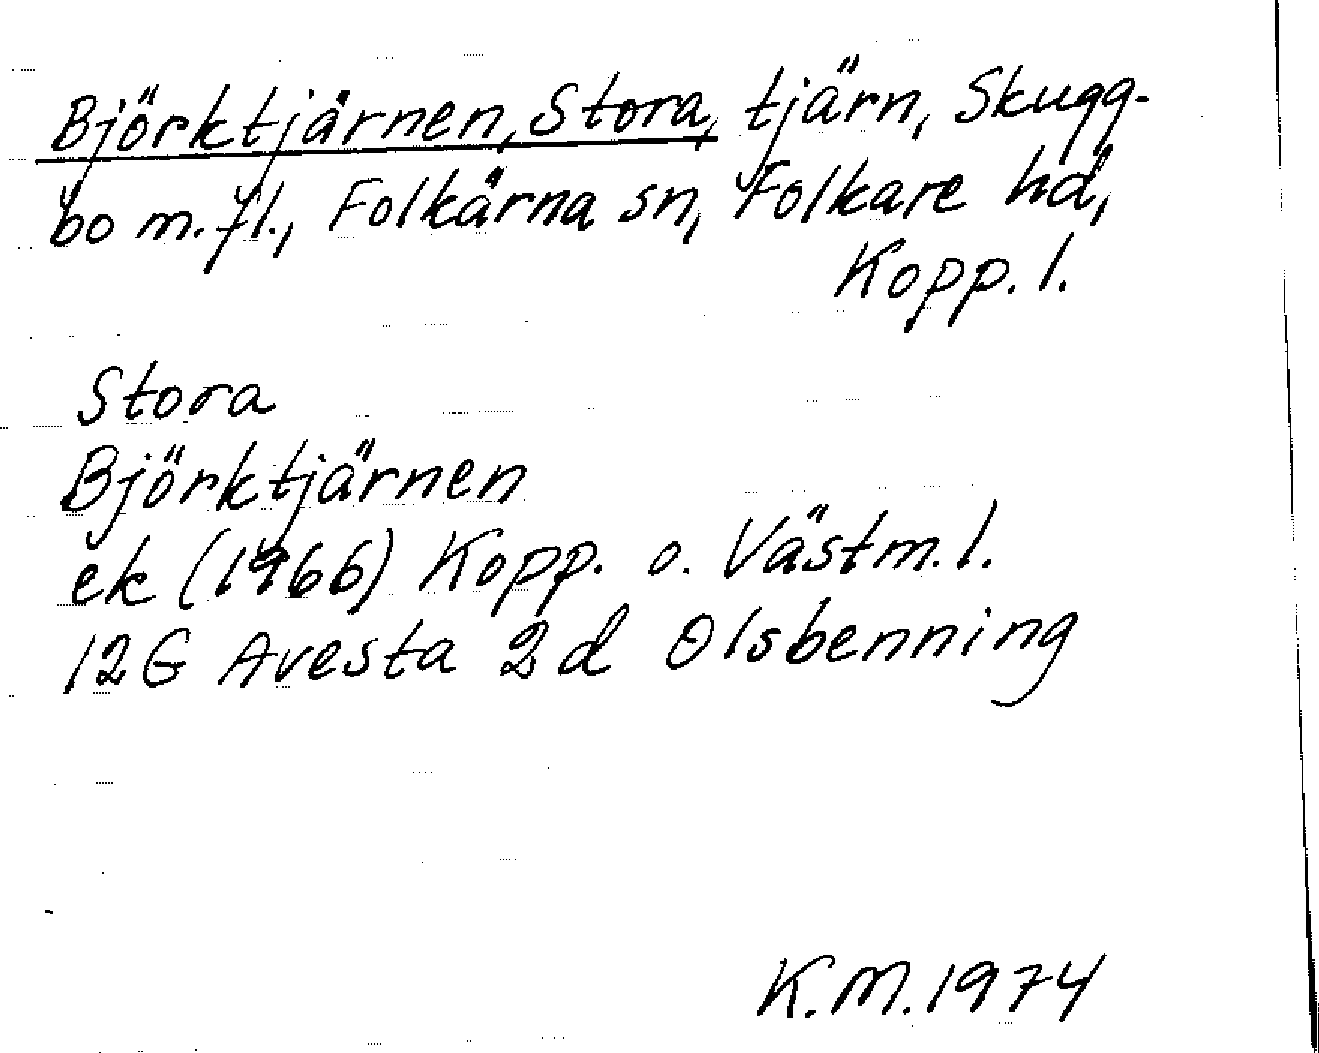 Björktjärnen, Stora, tjärn, Skugg-
bo m.fl., Folkärna sn, Folkare hd,
Kopp. l.
Stora
Björktjärnen
ek (1966) Kopp. o. Västm. l.
12G Avesta 2d Olsbenning
K.M. 1974